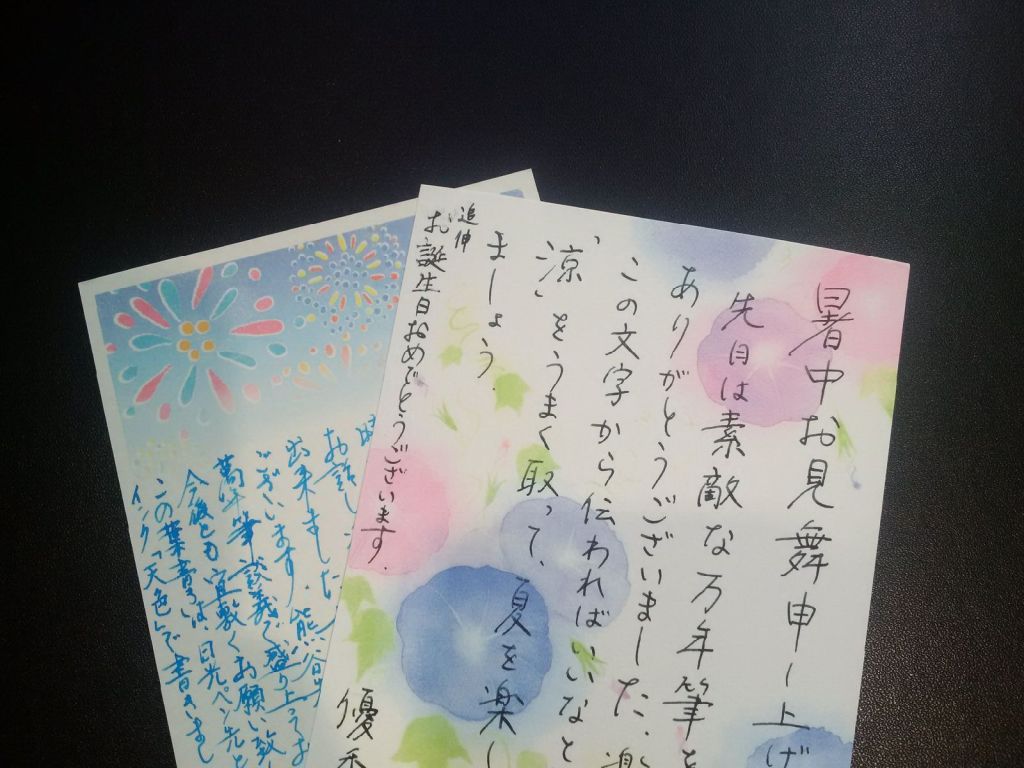 暑中お見舞申し上げ
先日は素敵な万年筆と
ありがとうございました。楽
この文字から伝わればいいなと
、涼」をうまく取って、夏を楽し
ましょう。
追伸
お誕生日おめでとうございます。
優香
お話し
出来ました。熊谷
ございます。盛り上って
萬年筆談義で
今後とも宜敷くお願い致
この葉書は、日光ペン先と
インク「天色」で書きまし